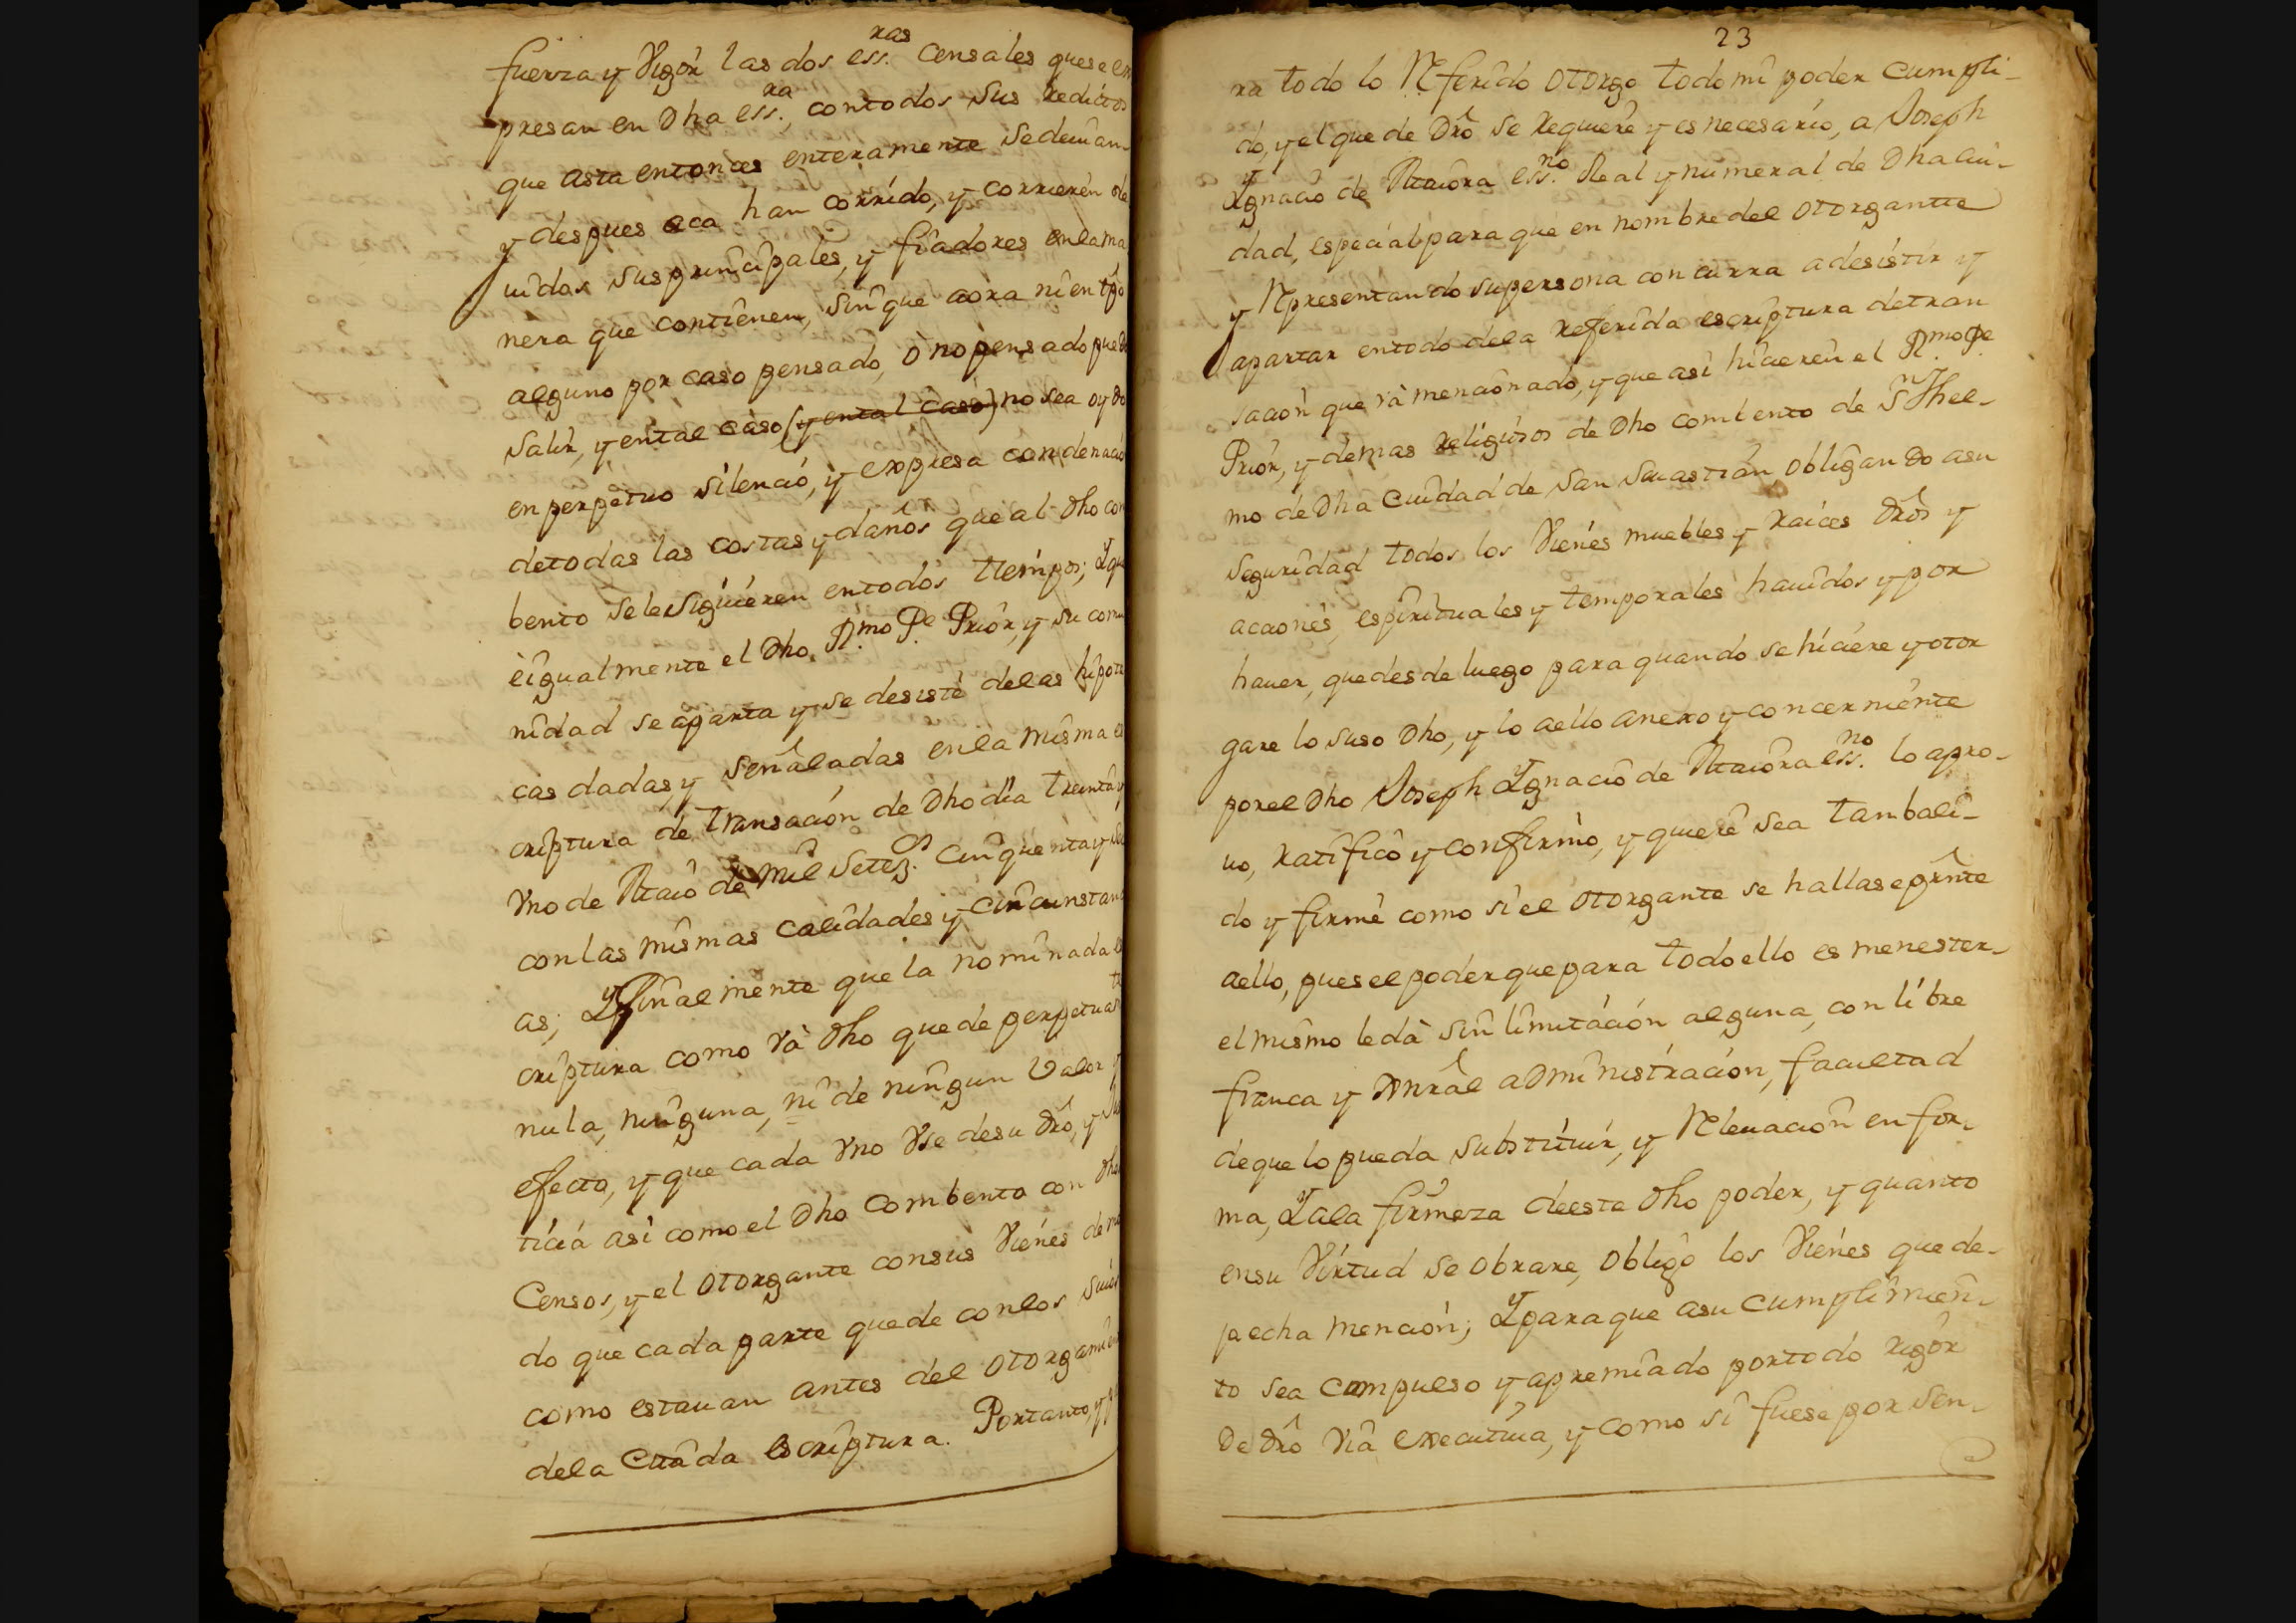 fuerza y Vigor las dos ess.ras Censales que se en
presan en Dha ess.ra, con todos sus reditos
que asta entonces enteramente se deuian
y despues aca han corrido, y corrieren de
uidos sus principales, y fiadores en la ma
nera que contienen, sin que aora ni en tpo
alguno por caso pensado, ò no pensado pueda
salir, y en tal caso (y en tal caso) no sea oydo
en perpetuo silencio, y expresa condenacio
de todas las costas y daños que al dho com
bento se le siguieren en todos tiempos; Y que
è igualmente el Dho R.mo P.e Prior, y su comu
nidad se aparta y se desiste de las hipote
cas dadas, y señaladas en la misma es
criptura de transacion de Dho dia treinta y
Vno de Maio de mil setez.os cinquenta y
con las mismas calidades y circunstanci
as; Y finalmente que la nominada es
criptura como và dho quede perpetuam.te
nula, ninguna, ni de ningun valor y
efecto, y que cada Vno Vse de su dro, y Jus
ticia asi como el Dho Combento con dhos
Censos, y el otorgante con sus Vienes de mo
do que cada parte quede con los suios
como estauan antes del otorgamien
de la Citada escriptura. Por tanto, y pa
23
ra todo lo Referido otorgo todo mi poder cumpli-
do, y el que de Dro se requiere y es necesario, a Joseph
Ygnacio de Maiora ess.no Real y numeral de Dha ciu-
dad, especial para que en nombre del otorgante
y Representando su persona concurra a desistir y
apartar en todo de la referida escriptura de tran
sacion que và mencionado, y que asi hicieren el R.mo P.e
Prior, y demas religiosos de Dho combento de Sn Thel-
mo de Dha Ciudad de San Seuastian, obligando a su
seguridad todos los Vienes muebles y raices dros y
acciones, espirituales y temporales hauidos y por
hauer, que desde luego para quando se hiciere y otor
gare lo suso Dho, y lo a ello anexo y concerniente
por el Dho Joseph Ygnacio de Maiora ess.no lo apro-
uo, ratifico y confirmo, y quiere sea tan bali-
do y firme como si el otorgante se hallase prnte
a ello, pues el poder que para todo ello es menester
el mismo le dà sin limitacion alguna, con libre
franca y Gnral administracion, facultad
de que lo pueda substituir, y Releuacion en for-
ma, Y a la firmeza de este dho poder, y quanto
en su Virtud se obrare, obligo los Vienes que de-
ja echa mencion; Y para que a su cumplimien-
to sea compulso y apremiado por todo rigor
De dro via executiua, y como si fuese por sen-